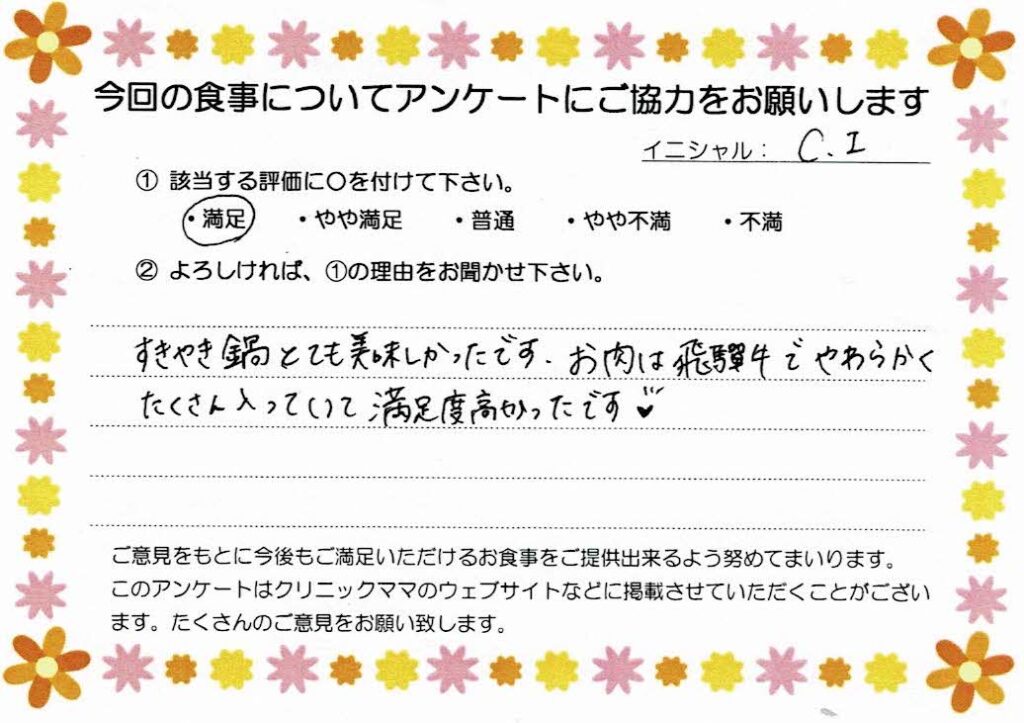 今回の食事についてアンケートにご協力をお願いします
イニシャル： C.I
① 該当する評価に〇を付けて下さい。
・満足 ・やや満足 ・普通 ・やや不満 ・不満
② よろしければ、①の理由をお聞かせ下さい。
すきやき鍋とても美味しかったです。お肉は飛騨牛でやわらかく
たくさん入っていて満足度高かったです♥
ご意見をもとに今後もご満足いただけるお食事をご提供出来るよう努めてまいります。
このアンケートはクリニックママのウェブサイトなどに掲載させていただくことがござい
ます。たくさんのご意見をお願い致します。